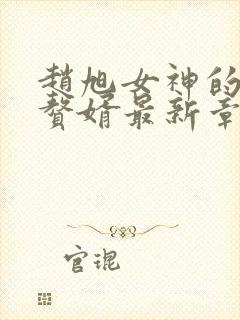 趙旭女神的
贅婿最新章
官琨